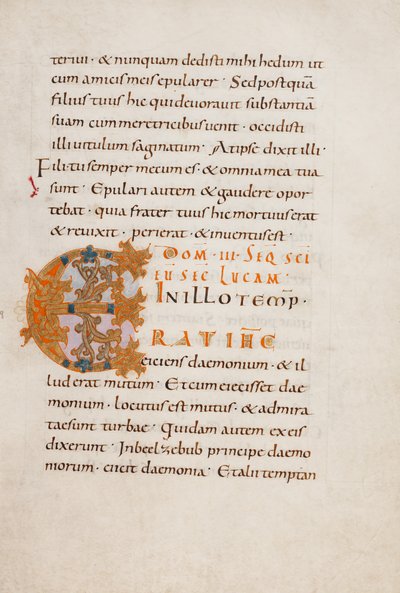 teriui · & nunquam dedisti mihi hedum ut
cum amicis meis epularer · Sed postquā
filius tuus hic qui deuorauit substantiā
suam cum meretricibus uenit · occidisti
illi uitulum saginatum · At ipse dixit illi ·
Fili · tu semper mecum es · & omnia mea tua
sunt · Epulari autem & gaudere opor
tebat · quia frater tuus hic mortuus erat
& reuixit · perierat · & inuentus est ·
DOM̄ · III · SEQ̄ SC̄I
EŪ SEC̄ LUCAM ·
IN ILLO TEMP̄ ·
ERAT IH̄C
eiciens daemonium · & il
lud erat mutum · Et cum eiecisset dae
monium · locutus est mutus · & admira
tae sunt turbae · Quidam autem ex eis
dixerunt · In beelzebub principe daemo
niorum · eiicit daemonia · Et alii temptan